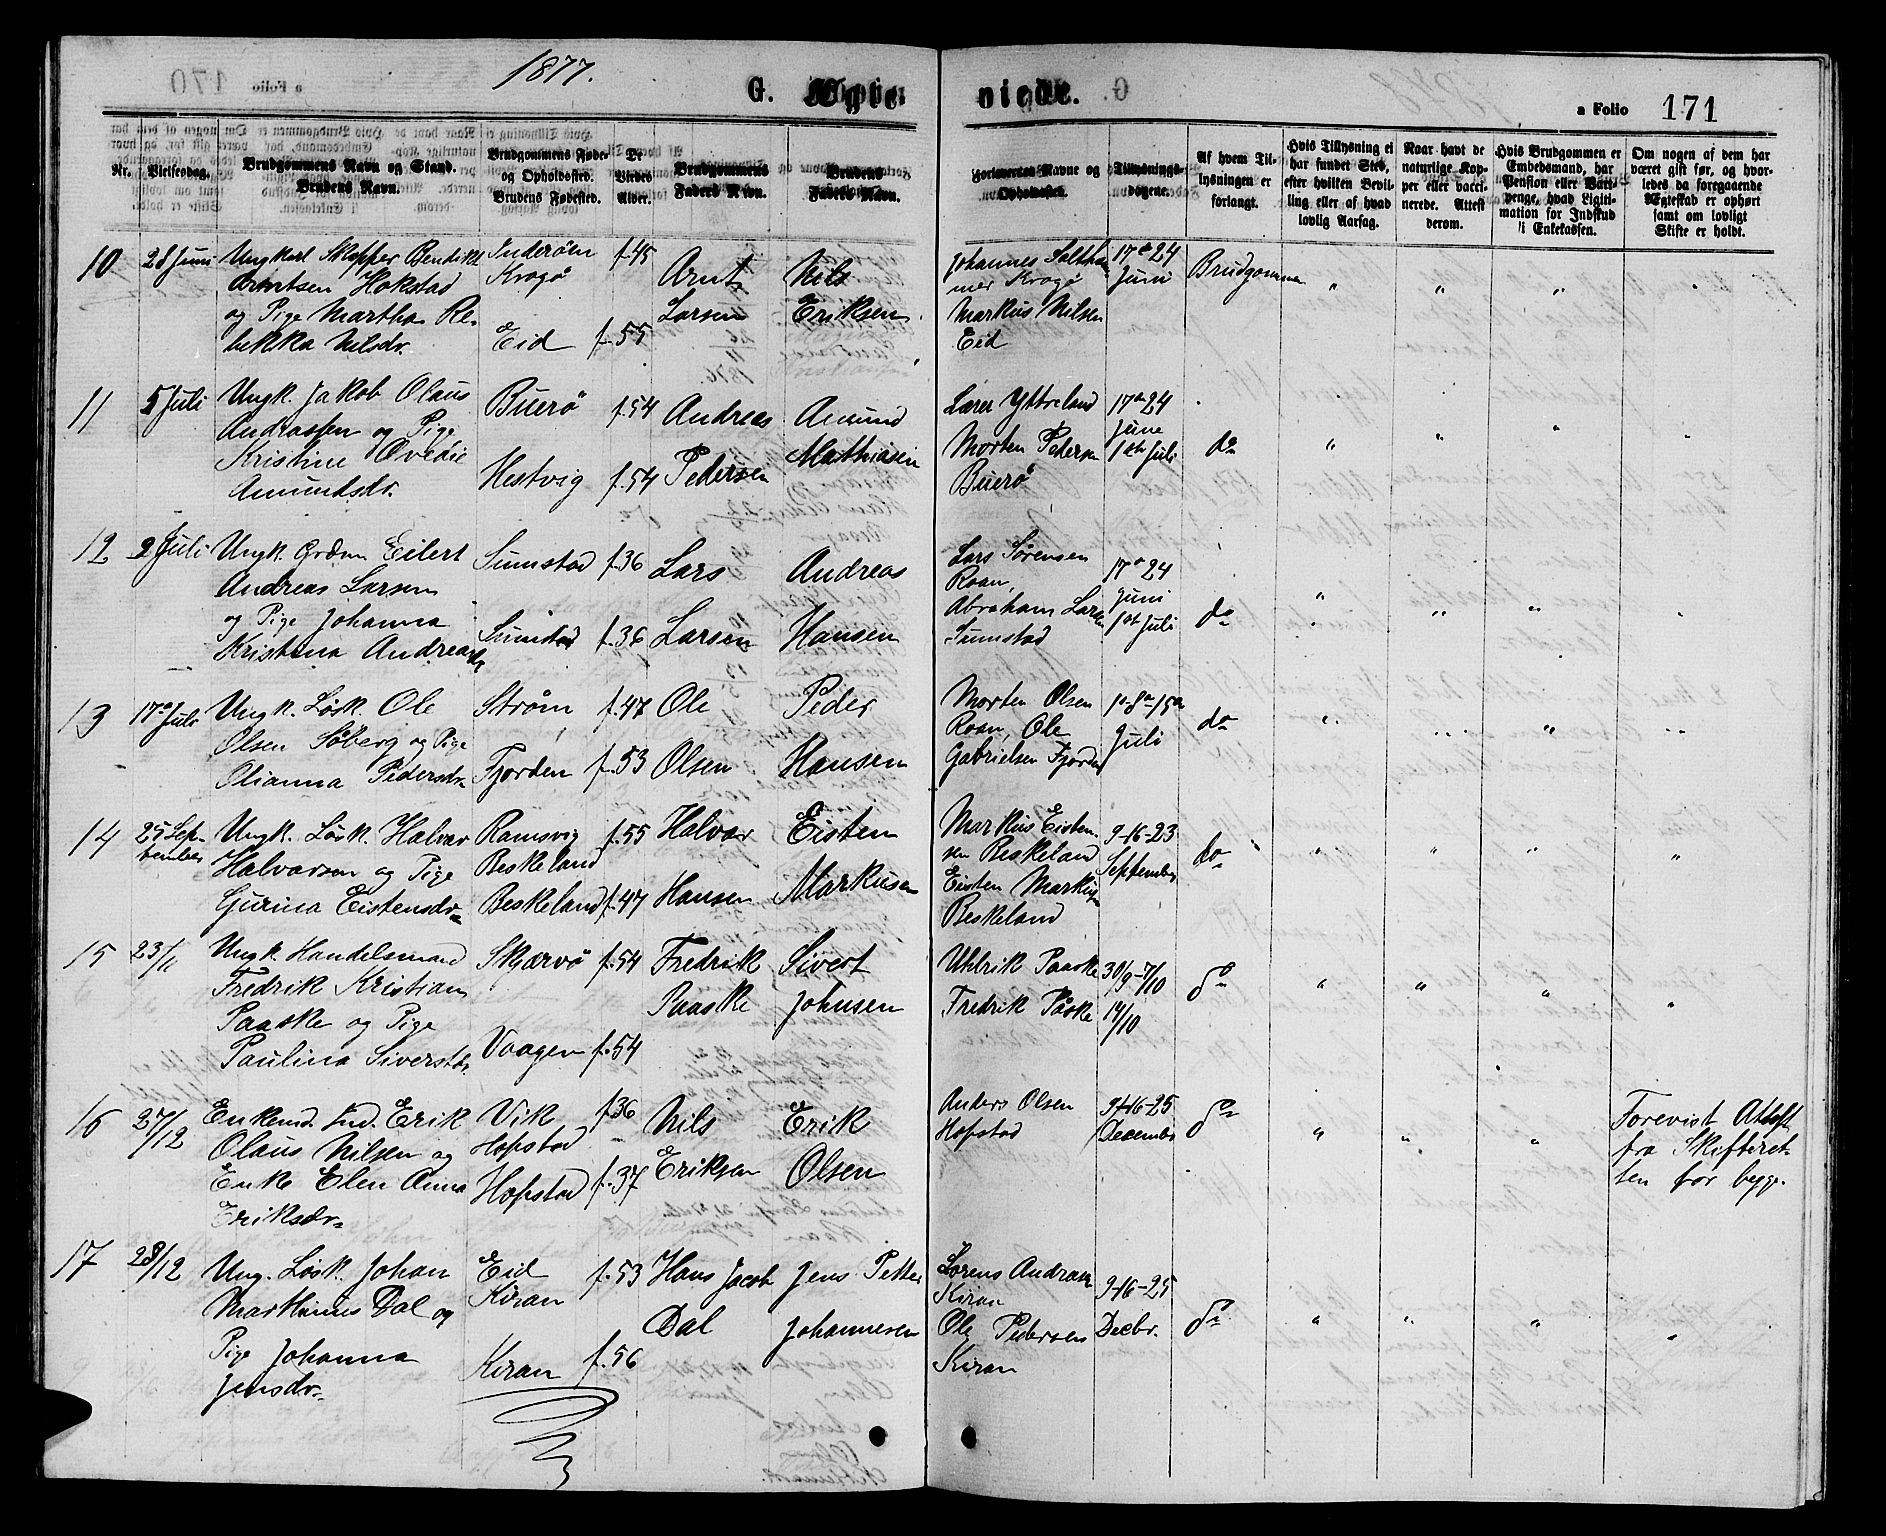 1877.
G. Ægte-
viede.
a Folio 171
Nr.
Vielsesdag.
Brudgommens Navn og Stand.
Brudens Navn.
Brudgommens Føde-
og Opholdssted.
Brudens Fødested.
De
Viedes
Alder.
Brudgommens
Faders Navn.
Brudens
Faders Navn.
Forlovernes Navne og
Opholdssted.
Tillysnings-
dagene.
Af hvem Til-
lysningen er
forlangt.
Hvis Tillysning ei
har fundet Sted,
efter hvilken Bevil-
ling eller af hvad
lovlig Aarsag.
Naar havt de
naturlige Kop-
per eller vacci-
nerede. Attest
derom.
Hvis Brudgommen er
Embedsmand, har
Pension eller Vart-
penge, hvad Ligiti-
mation for Indskud
i Enkekassen.
Om nogen af dem har
været gift før, og hvor-
ledes da foregaaende
Ægteskab er ophørt
samt om lovligt
Skifte er holdt.
10 28 Juni
Ungkarl Skipper Bendikt
Arntsen Hokstad
og Pige Martha Re-
bekka Nilsdr.
Inderøen
Kragø
Eid
f. 45
f. 55
Arnt
Larsen
Nils
Eriksen
Johannes Saltham-
mer Kragø
Markus Nilsen
Eid
17de 24
Juni
Brudgommen
11 5 Juli
Ungk. Jakob Olaus
Andreassen og Pige
Kristine Ovedie
Amundsdr.
Buerø
Hestvig
f. 54
f. 54
Andreas
Pedersen
Amund
Mathiasen
Lærer Yttreland
Morten Pedersen
Buerø
17de 24
June
1ste Juli
do
12 2 Juli
Ungk. Grdm. Eilert
Andreas Larsen
og Pige Johanna
Kristina Andreasdr
Sumstad
Sumstad
f. 36
f. 36
Lars
Larsen
Andreas
Hansen
Lars Sørensen
Roan,
Abraham Larsen
Sumstad
17de 24
Juni
1ste Juli
do
13 17de Juli
Ungk. Løsk. Ole
Olsen Søberg og Pige
Olianna Pedersdr.
Strøm
Fjorden
f. 47
f. 53
Ole
Olsen
Peder
Hansen
Morten Olsen
Roan, Ole
Gabrielsen Fjorden
1e-8de-15de
Juli
do
14 25 Sep-
tember
Ungk. Løsk. Halvar
Halvarsen og Pige
Gurina Eistensdr.
Ramsvig
Beskeland
Beskeland
f. 55
f. 47
Halvar
Hansen
Eisten
Markusen
Markus Eisten-
sen Beskeland
Eisten Markusen
Beskeland
9-16-23
September
do
15 23/11
Ungk. Handelsmand
Fredrik Kristian
Paaske og Pige
Paulina Siverstdr.
Skjærvø
Vaagen
f. 54
f. 54
Fredrik
Paaske
Sivert
Johnsen
Uhlrik Paaske
Fredrik Påske
30/9-7/10
14/10
do
16 27/12
Enkemd. Ind. Erik
Olaus Nilsen og
Enke Elen Anna
Eriksdr.
Vik
Hopstad
Hopstad
f. 36
f. 37
Nils
Eriksen
Erik
Olsen
Anders Olsen
Hopstad
9-16-25
December
do
Forevist Attest
fra Skifteret-
ten for begge.
17 28/12
Ung. Løsk. Johan
Marthinus Dal og
Pige Johanna
Jensdr.
Eid
Kiran
Kiran
f. 53
f. 56
Hans Jacob
Dal
Jens Petter
Johannesen
Lorens Andreas
Kiran
Ole Pedersen
Kiran
9-16-25
Decbr.
do